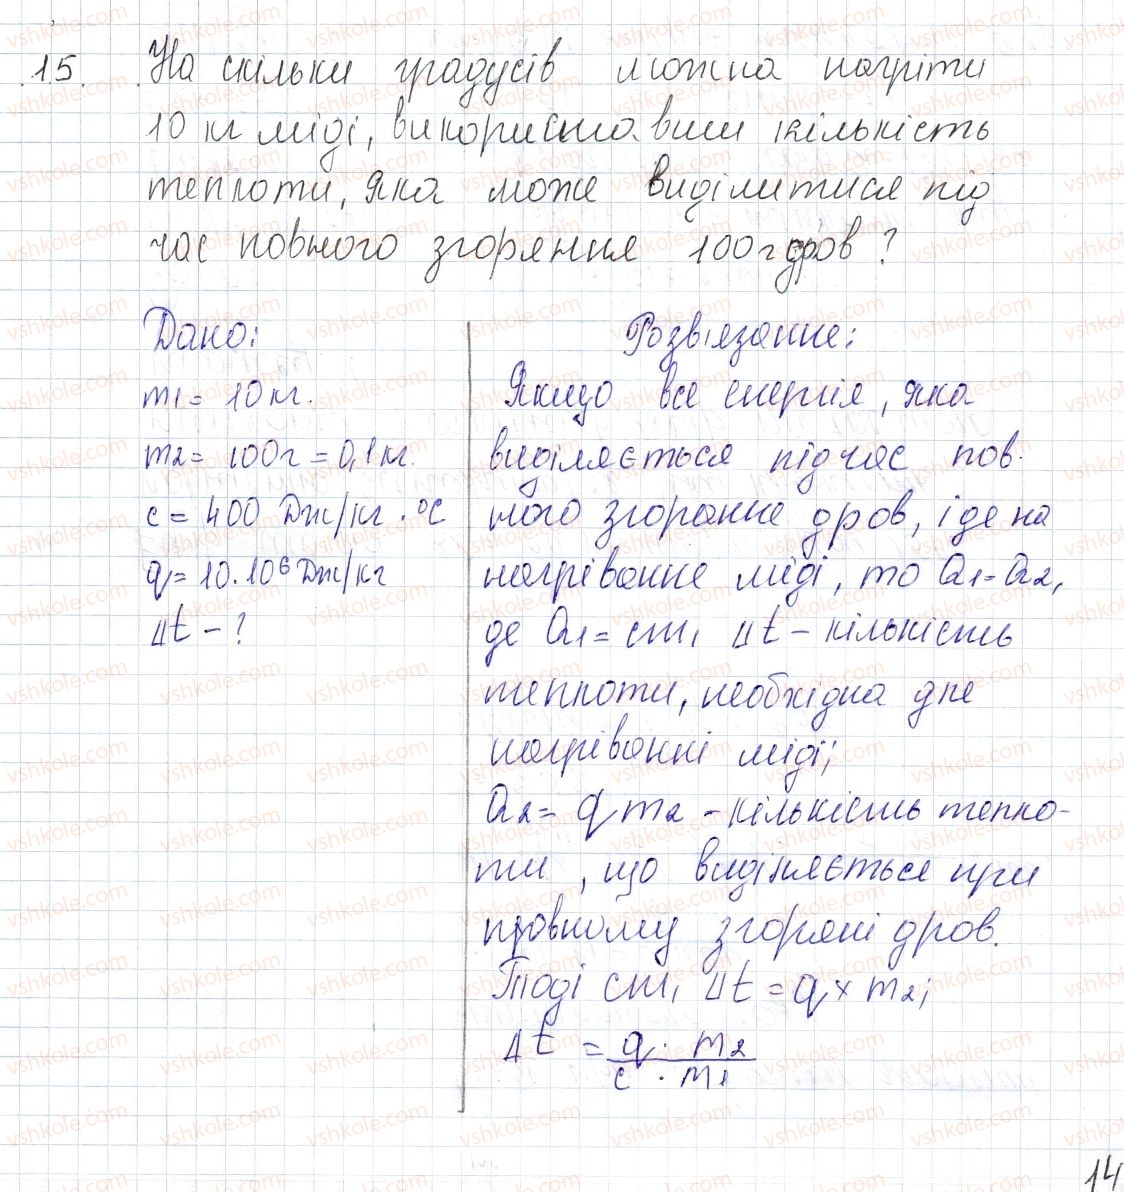 15. На скільки градусів можна нагріти
10 кг міді, використавши кількість
теплоти, яка може виділитися під
час повного згоряння 100 г дров?
Дано:
m1 = 10 кг.
m2 = 100 г = 0,1 кг.
c = 400 Дж/кг · °C
q = 10.10⁶ Дж/кг
Δt - ?
Розв'язання:
Якщо вся енергія, яка
виділяється під час пов.
ного згорання дров, іде на
нагрівання міді, то Q1 = Q2,
де Q1 = cm1 Δt - кількість
теплоти, необхідна для
нагріванні міді;
Q2 = qm2 - кількість тепло-
ти, що виділяється при
повному згоряні дров.
Тоді cm1 Δt = q × m2;
Δt = q · m2
c · m1
14